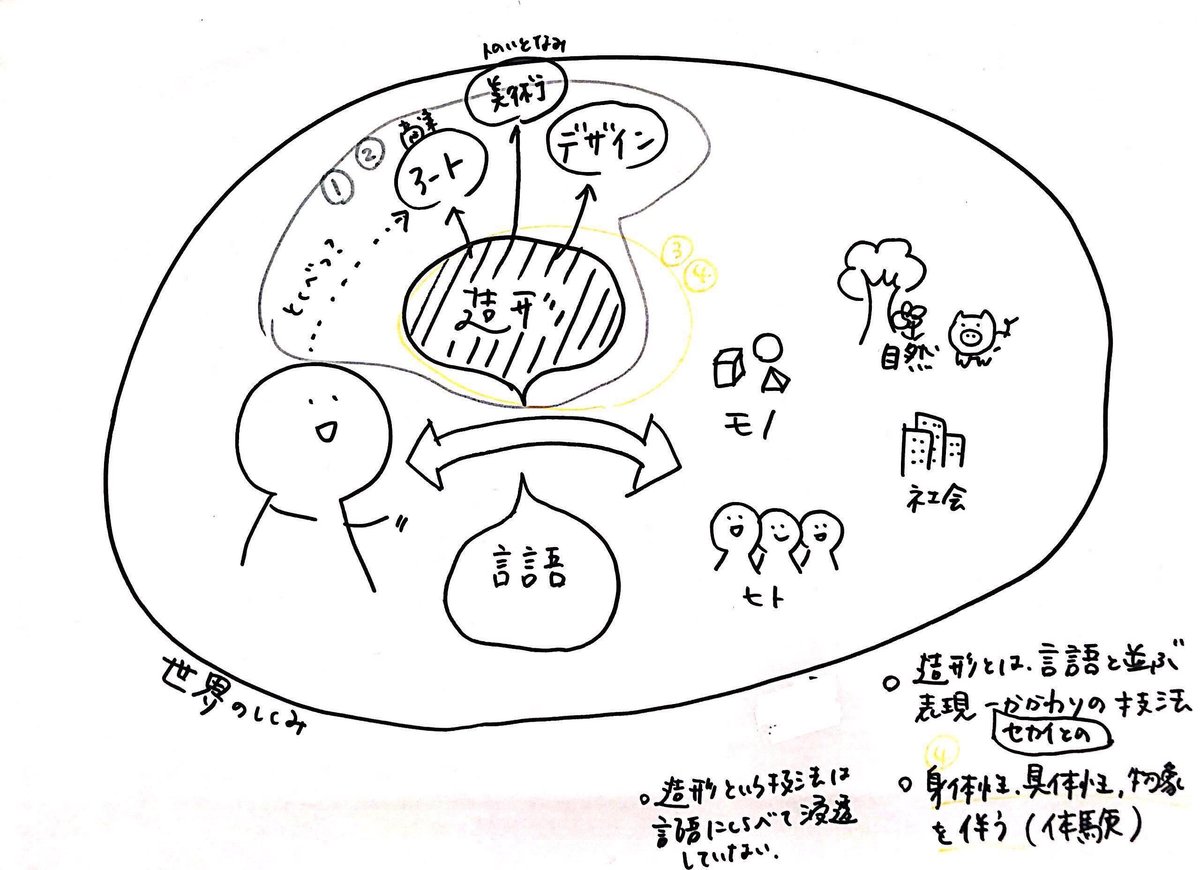 人のいとなみ
美術
デザイン
アート
②
①
とくべつ?
造形
③
④
自然
モノ
社会
ヒト
言語
世界のしくみ
○ 造形とは、言語と並ぶ
表現-かかわりの技法
セカイとの
④
○ 身体性、具体性、物象
を伴う(体験)
○ 造形という技法は
言語にくらべて浸透
していない.